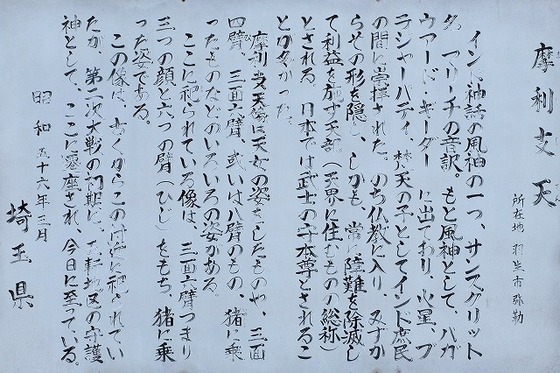 摩利支天
所在地 羽生市弥勒
インド神話の風神の一つ、サンスクリット
名 マリーチの音訳、もと風神として、バガ
ヴァード・ギーター に出ており、火星、プ
ラジャーパティ、梵天の子としてインド庶民
の間に崇拝された。のち仏教に入り、みずか
らその形を隠し、しかも、常に障難を除滅し
て利益を施す天部（天界に住むものの総称）
とされる 日本では武士の守本尊とされるこ
とが多かった。
摩利支天像は天女の姿をしたものや、三面
四臂、三面六臂、或いは八臂のもの、猪に乗
ったものなどのいろいろの姿がある。
ここに祀られている像は、三面六臂つまり
三つの顔と六つの臂（ひじ）をもち、猪に乗
った姿である。
この像は、古くからこの に祀られてい
たが 第二次大戦の初期に、 地区の守護
神として、ここに遷座され、今日に至っている。
昭和五十六年三月
埼玉県